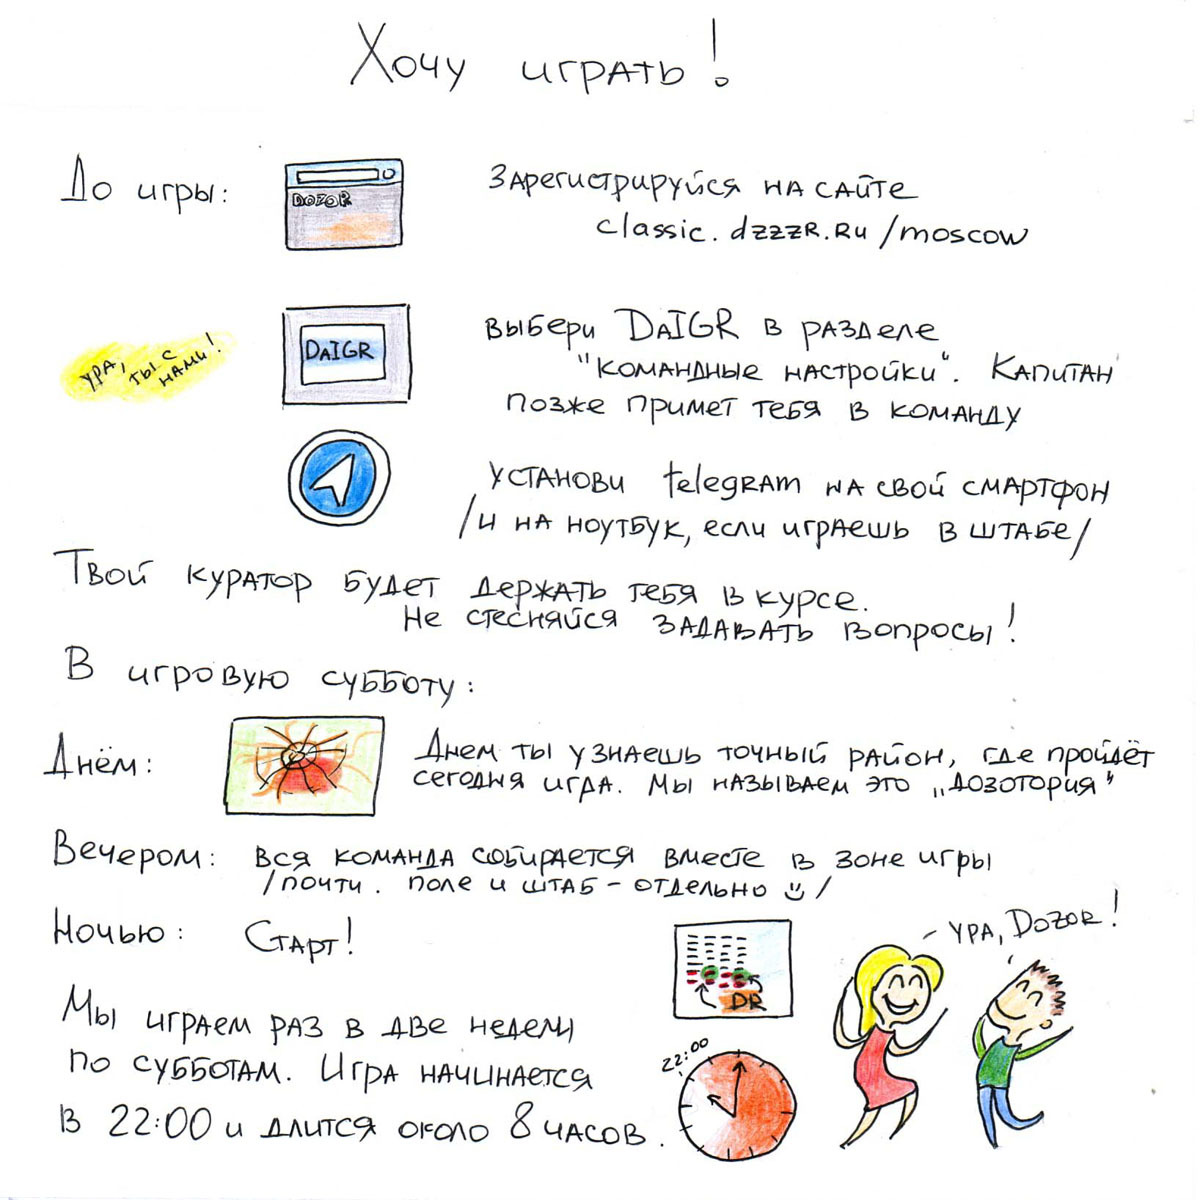 Хочу играть!
До игры:
DOZOR
Зарегистрируйся на сайте
classic.dzzzr.ru/moscow
Ура,
ты с
нами!
DAIGR
Выбери DAIGR в разделе
"Командные настройки". Капитан
позже примет тебя в команду
Установи telegram на свой смартфон
/и на ноутбук, если играешь в штабе/
Твой куратор будет держать тебя в курсе.
Не стесняйся задавать вопросы!
В игровую субботу:
Днём:
Днем ты узнаешь точный район, где пройдёт
сегодня игра. Мы называем это „дозотория"
Вечером: Вся команда собирается вместе в зоне игры
/почти. Поле и штаб - отдельно/
Ночью: Старт!
- Ура, Dozor!
DR
Мы играем раз в две недели
по субботам. Игра начинается
в 22:00 и длится около 8 часов.
22:00